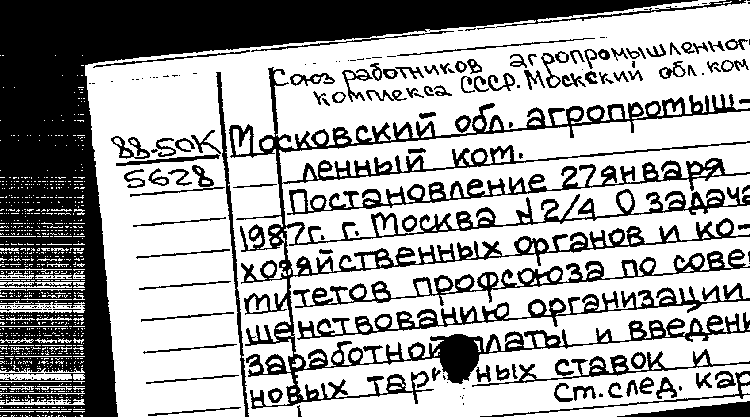 Союз работников агропромышленного
комплекса СССР. Москский обл. ком
88-50К
5628
Московский обл. агропромыш-
ленный ком.
Постановление 27 января
1987г. г. Москва № 2/4 О задача
хозяйственных органов и ко-
митетов профсоюза по совер
шенствованию организации
заработной платы и введени
новых тар ных ставок и
См. след. кар